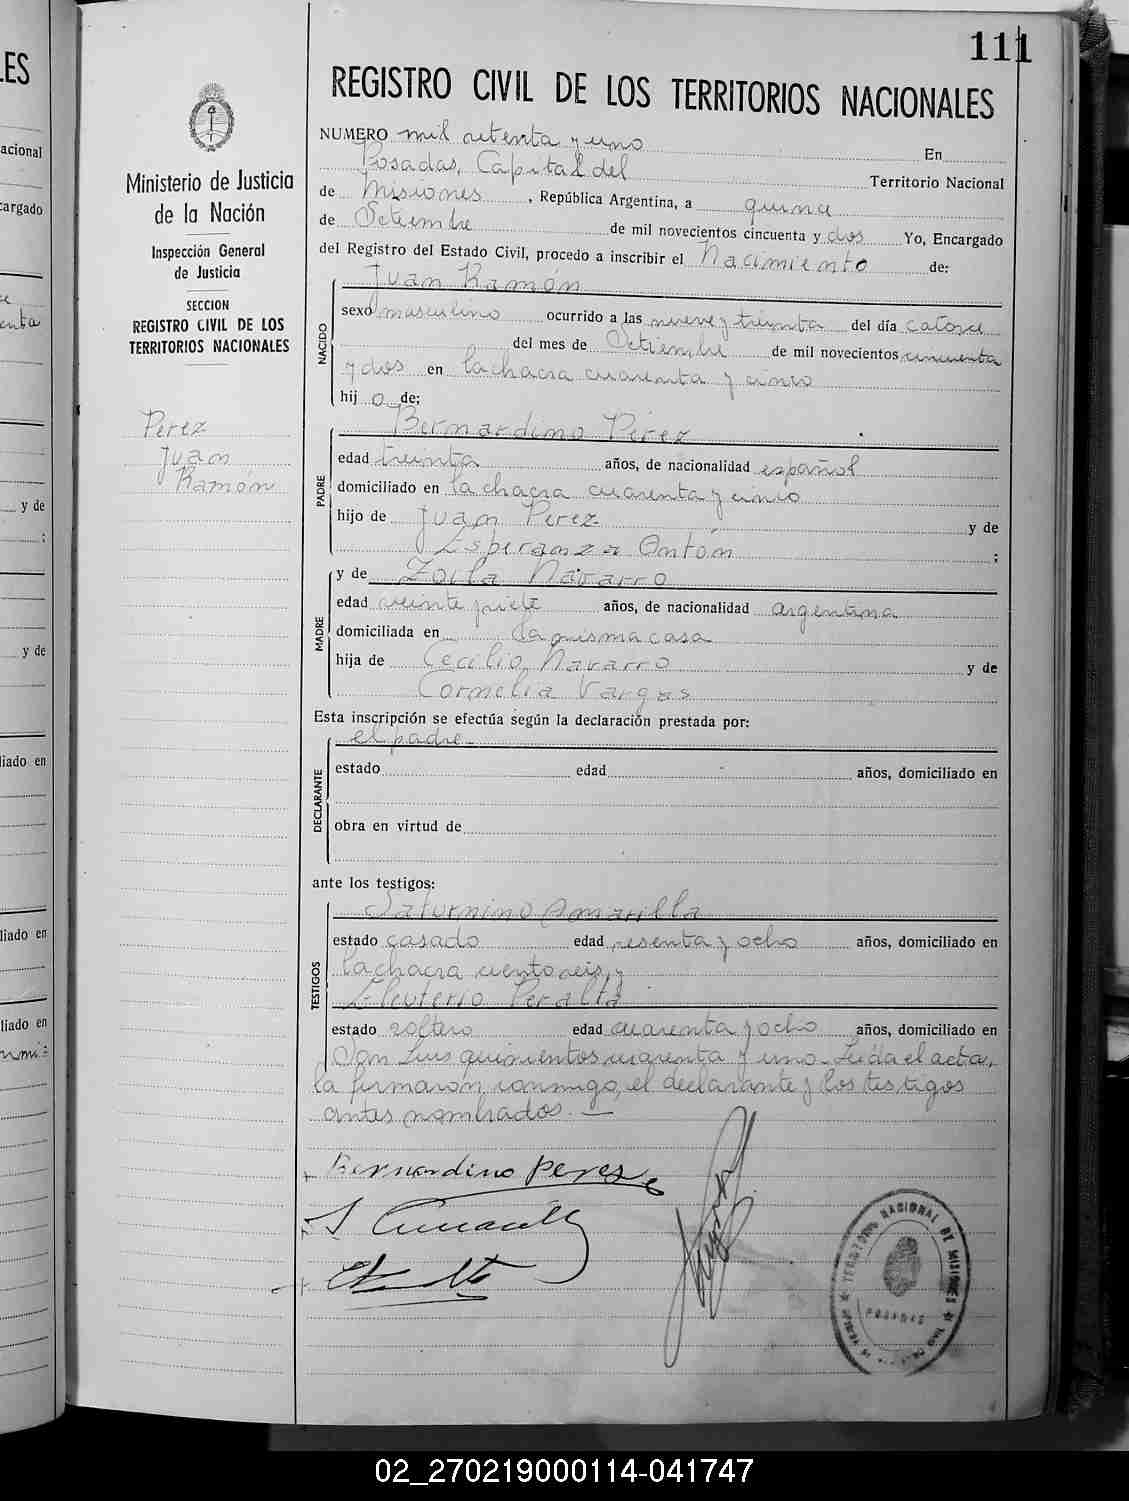 111
REGISTRO CIVIL DE LOS TERRITORIOS NACIONALES
Ministerio de Justicia
de la Nación
Inspección General
de Justicia
SECCION
REGISTRO CIVIL DE LOS
TERRITORIOS NACIONALES
Perez
Juan
Ramón
NUMERO mil setenta y uno En
Posadas, Capital del Territorio Nacional
de Misiones, República Argentina, a quince
de Setiembre de mil novecientos cincuenta y dos Yo, Encargado
del Registro del Estado Civil, procedo a inscribir el Nacimiento de:
NACIDO
Juan Ramón
sexo masculino ocurrido a las nueve y treinta del día catorce
del mes de Setiembre de mil novecientos cincuenta
y dos en la chacra cuarenta y cinco
hij o de:
PADRE
Bernardino Pérez
edad treinta años, de nacionalidad español
domiciliado en la chacra cuarenta y cinco
hijo de Juan Perez y de
Esperanza Ontón ;
MADRE
y de Zoila Navarro
edad veinte siete años, de nacionalidad argentina
domiciliada en la misma casa
hija de Cecilio Navarro y de
Cornelia Vargas
Esta inscripción se efectúa según la declaración prestada por:
DECLARANTE
el padre
estado edad años, domiciliado en
obra en virtud de
ante los testigos:
TESTIGOS
Saturnino Amarilla
estado casado edad sesenta y ocho años, domiciliado en
la chacra ciento seis, y
Eleuterio Peralta
estado soltero edad cuarenta y ocho años, domiciliado en
San Luis quinientos cuarenta y uno. Leída el acta,
la firmaron conmigo, el declarante y los testigos
antes nombrados. —
Bernardino Perez
TERRITORIO NACIONAL DE MISIONES
POSADAS
02_270219000114-041747